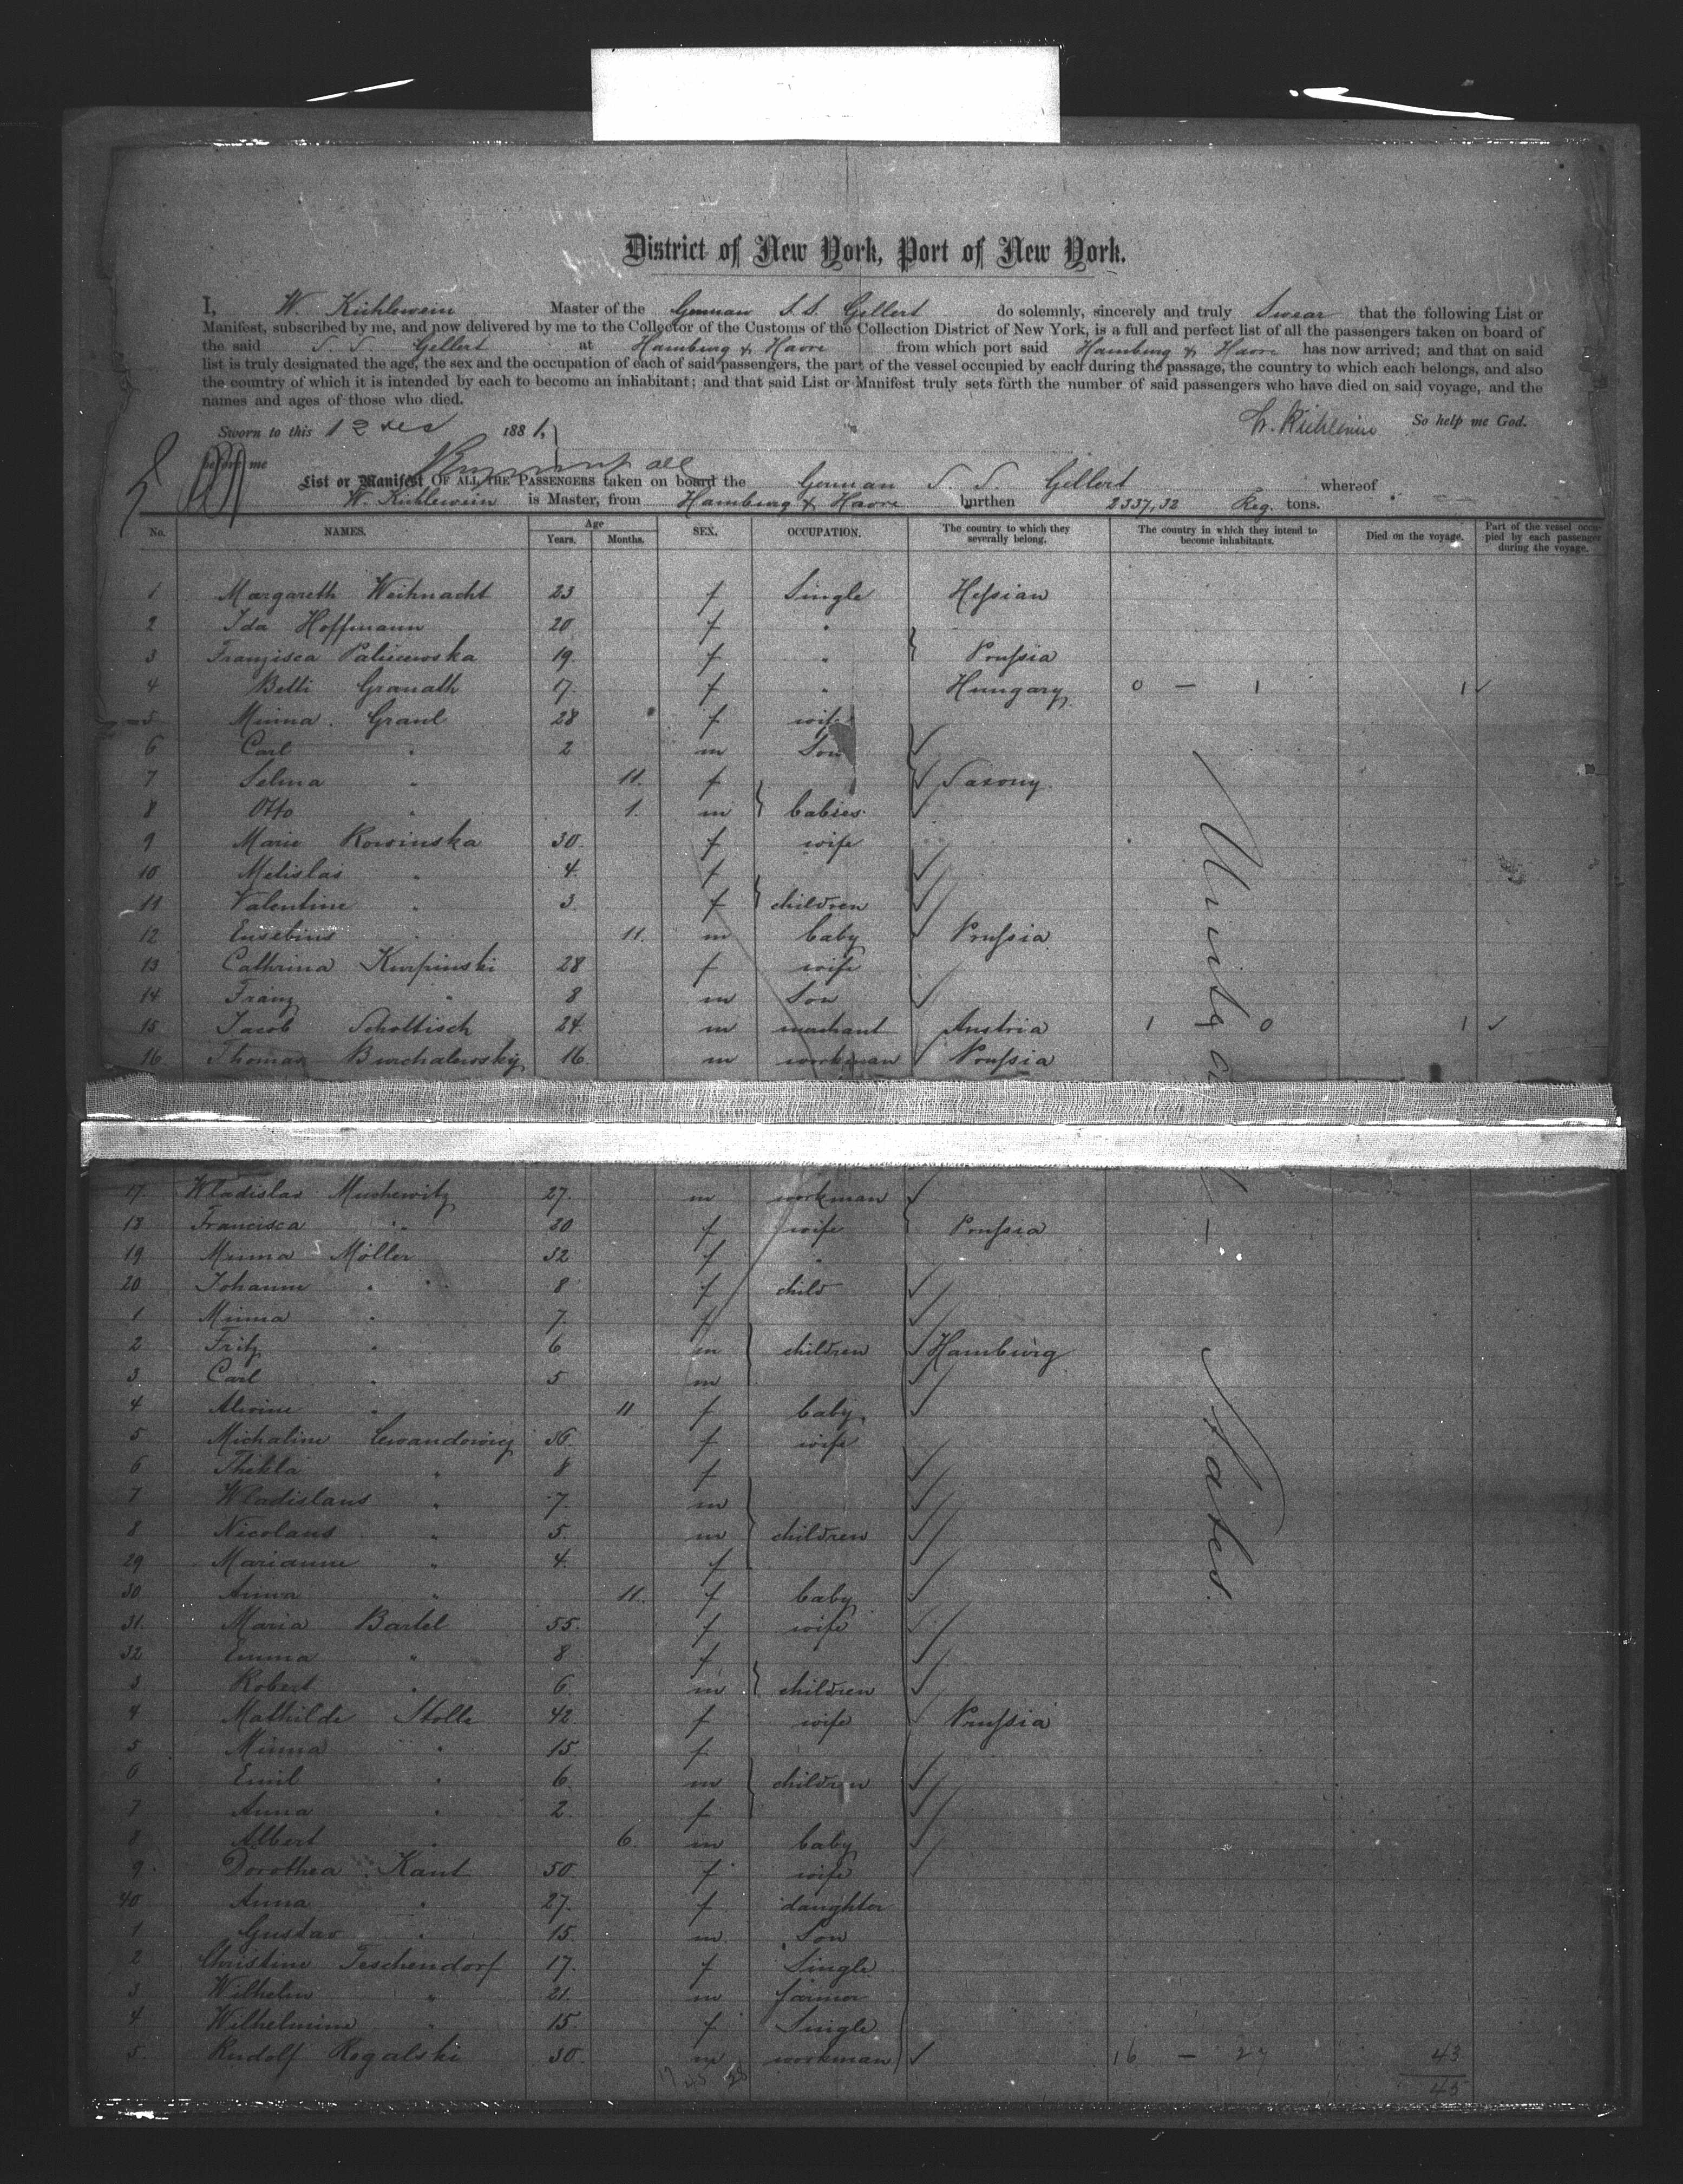 District of New York, Port of New York.
I, W. Kühlewein Master of the German S.S. Gellert do solemnly, sincerely and truly Swear that the following List or
Manifest, subscribed by me, and now delivered by me to the Collector of the Customs of the Collection District of New York, is a full and perfect list of all the passengers taken on board of
the said S. S. Gellert at Hamburg & Havre from which port said Hamburg & Havre has now arrived; and that on said
list is truly designated the age, the sex and the occupation of each of said passengers, the part of the vessel occupied by each during the passage, the country to which each belongs, and also
the country of which it is intended by each to become an inhabitant; and that said List or Manifest truly sets forth the number of said passengers who have died on said voyage, and the
names and ages of those who died.
Sworn to this 12 Dec 1881, W. Kühlewein So help me God.
before me
List or Manifest OF ALL THE PASSENGERS taken on board the German S. S. Gellert whereof
W. Kühlewein is Master, from Hamburg & Havre burthen 2337,32 Reg. tons.
No. NAMES. Age Years. Months. SEX. OCCUPATION. The country to which they severally belong. The country in which they intend to become inhabitants. Died on the voyage. Part of the vessel occupied by each passenger during the voyage.
1 Margareth Weihnacht 23 f Single Hessian
2 Ida Hoffmann 20 f "
3 Franzisca 19 f " Prussia
4 Betti Granath 17 f " Hungary 0 — 1 1
5 Minna Graul 28 f wife
6 Carl " 2 m Son
7 Selma " 11 f Saxony
8 Otto " 1 m babies
9 Marie Rowinska 30 f wife
10 Melislai " 4 f
11 Valentine " 3 f children
12 Eusebius " 11 m baby Prussia
13 Cathrina Kurpinski 28 f wife
14 Franz " 8 m Son
15 Jacob Schottisch 24 m machant Austria 1 0 1
16 Thomas Burchalewsky 16 m workman Prussia
United States
17 Wladislav Muchewitz 27 m workman
18 Francisca " 20 f wife Prussia
19 Minna Möller 32 f "
20 Johanne " 8 f child
1 Minna " 7 f
2 Fritz " 6 m children Hamburg
3 Carl " 5 m
4 Alwine " 11 f baby
5 Michaline Lewandowicz 36 f wife
6 Thekla " 8 f
7 Wladislaus " 7 m
8 Nicolaus " 5 m children
29 Marianne " 4 f
30 Anna " 11 f baby
31 Maria Bartel 55 f wife
32 Emma " 8 f
3 Robert " 6 m children
4 Mathilde Stolle 42 f wife Prussia
5 Minna " 15 f
6 Emil " 6 m children
7 Anna " 2 f
8 Albert " 6 m baby
9 Dorothea Kant 50 f wife
40 Anna " 27 f daughter
1 Gustav " 15 m Son
2 Christine Teschendorf 17 f Single
3 Wilhelm " 21 m farmer
4 Wilhelmine " 15 f Single
5 Rudolf Rogalski 30 m workman 16 — 27 43
17 45 28 45